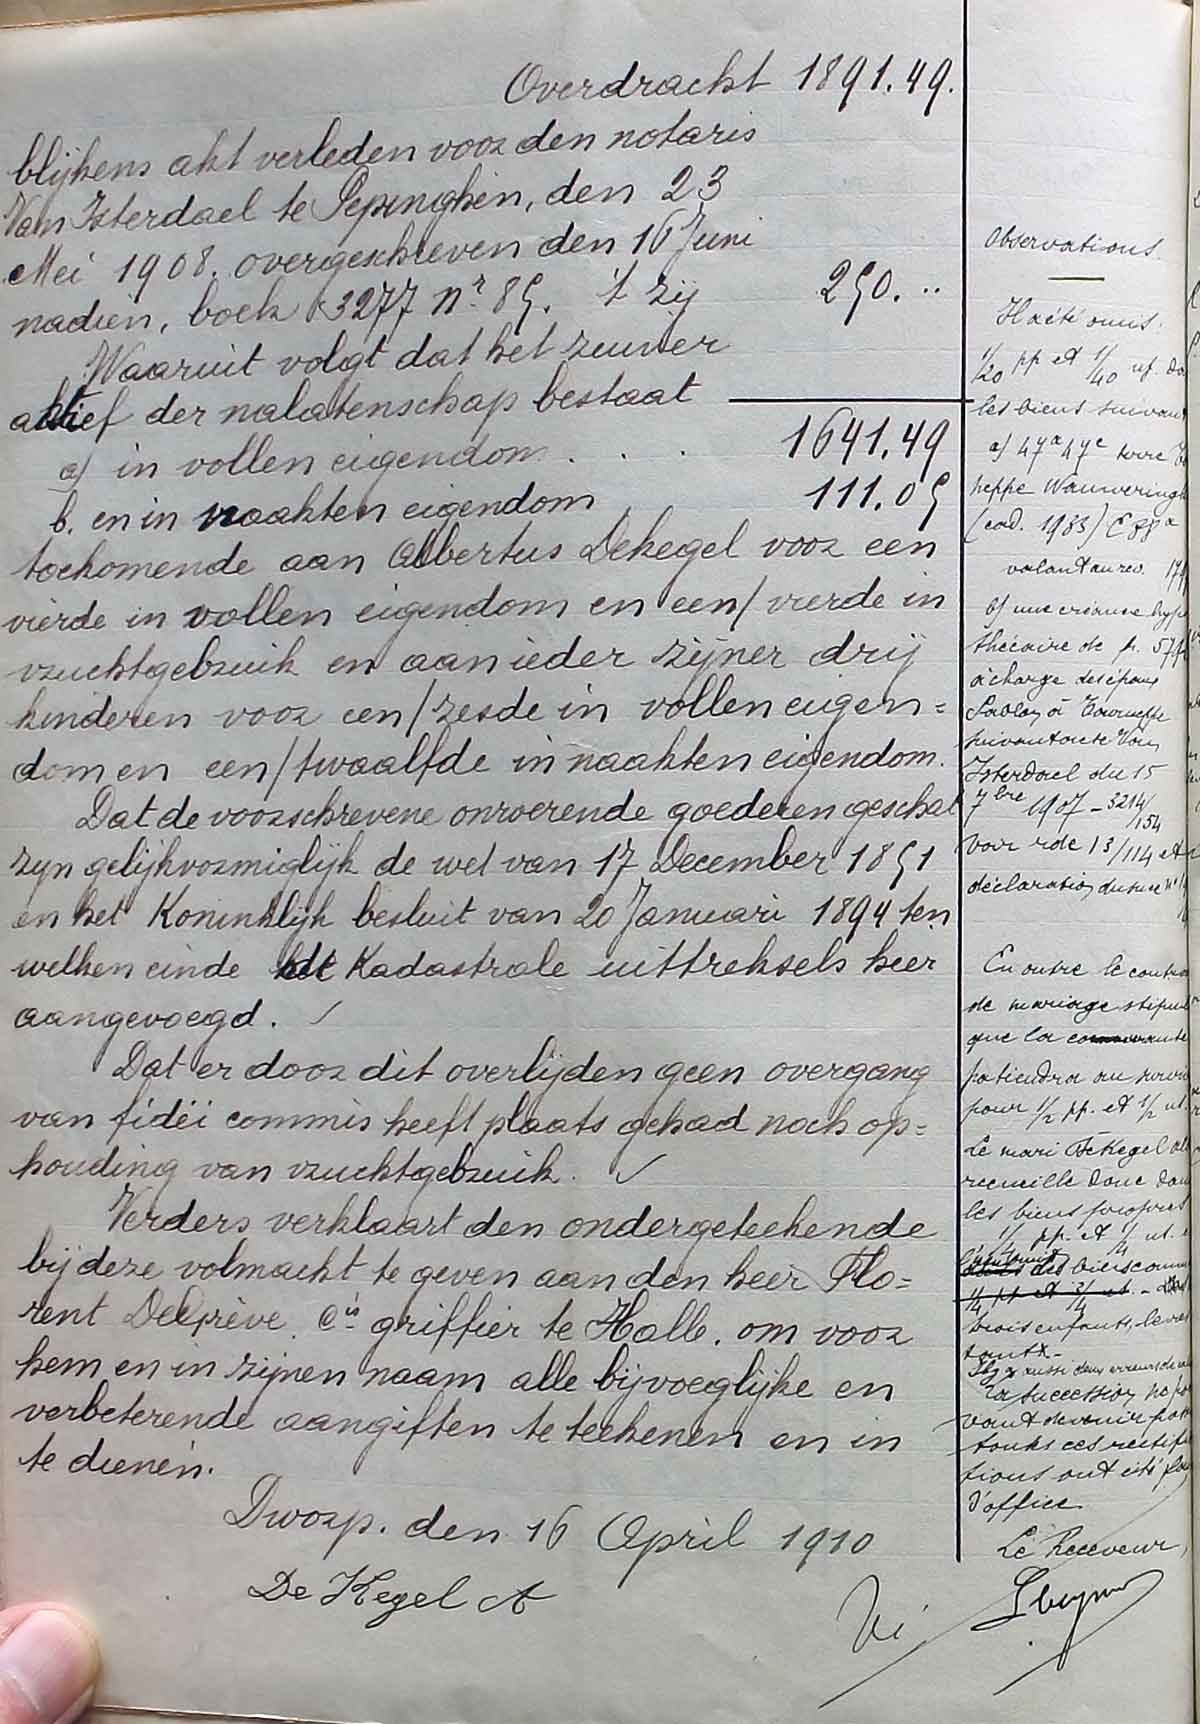 Overdracht 1891.49.
blijkens akt verleden voor den notaris
Van Isterdael te Pepinghen, den 23
Mei 1908. overgeschreven den 16 Juni
nadien, boek 3277 nr 85. 't zij 250. ..
Waaruit volgt dat het zuiver
aktief der nalatenschap bestaat
a/ in vollen eigendom . . . 1641.49
b. en in naakten eigendom 111.05
toekomende aan Albertus Dekegel voor een
vierde in vollen eigendom en een/vierde in
vruchtgebruik en aan ieder zijner drij
kinderen voor een/zesde in vollen eigen=
dom en een/twaalfde in naakten eigendom.
Dat de voorschrevene onroerende goederen geschat
zyn gelijkvormiglijk de wet van 17 December 1851
en het Koninklijk besluit van 20 Januari 1894 ten
welken einde de Kadastrale uittreksels heer
aangevoegd.
Dat er door dit overlijden geen overgang
van fidéi commis heeft plaats gehad noch op=
houding van vruchtgebruik.
Verders verklaart den ondergeteekende
bij deze volmacht te geven aan den heer Flo=
rent Delprève cis griffier te Halle. om voor
hem en in zijnen naam alle bijvoeglijke en
verbeterende aangiften te teekenen en in
te dienen.
Dworp. den 16 April 1910
De Kegel A
Observations
Il a été omis
1/20 pp et 1/40 uf. da
les biens suivan
a/ 47a 47c terre
heppe Wauweringh
(cad. 1933)
valant au rev.
b/ une créance hypo
thécaire de
à charge des époux
à Tourneppe
suivant acte Van
Isterdael du 15
7bre 1907 - 3214/154
Voir rde 13/114 et
déclaration
En outre le contra
de mariage stipul
que la
pour 1/2 pp. et 1/2 us.
Le mari DeKegel
recueille donc dan
les biens propres
1/4 pp. et 1/4 us.
biens comm
1/4 pp et 2/4 us.
trois enfants, le res
tant
Il y a aussi deux erreurs de
La succession ne pou
vant devenir
toutes ces rectifi
tions ont été
d'office
Le Receveur,